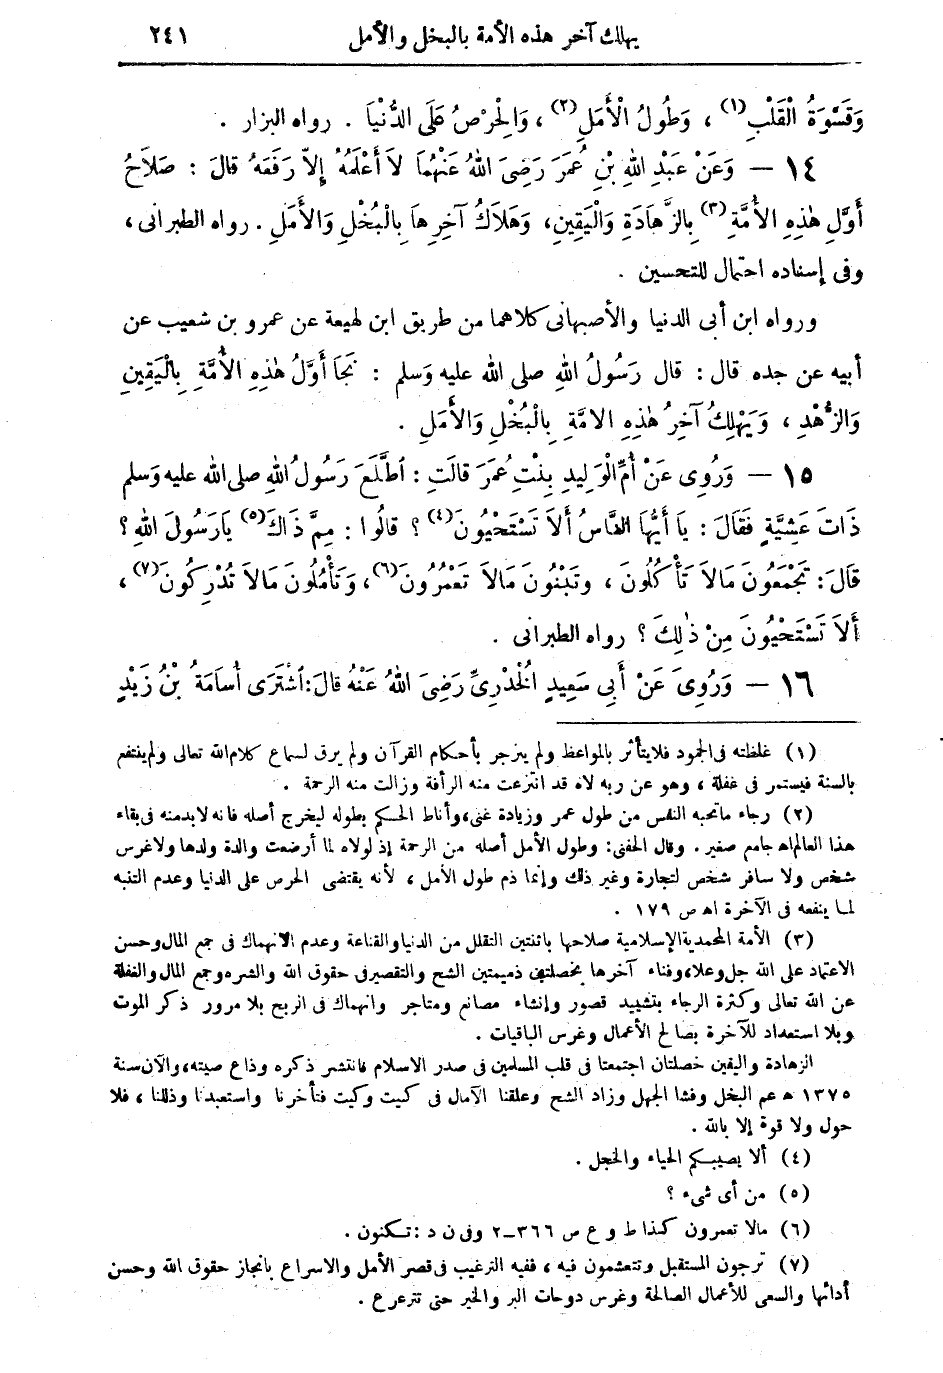 يهلك آخر هذه الأمة بالبخل والأمل ٢٤١
وَقَسْوَةُ الْقَلْبِ (١) ، وَطُولُ الْأَمَلِ (٢) ، وَالْحِرْصُ عَلَى الدُّنْيَا . رواه البزار .
١٤ — وَعَنْ عَبْدِ اللهِ بْنِ عُمَرَ رَضِىَ اللهُ عَنْهُمَا لاَ أَعْلَمُهُ إِلاَّ رَفَعَهُ قالَ : صَلاَحُ
أَوَّلِ هٰذِهِ الأُمَّةِ (٣) بِالزَّهَادَةِ وَالْيَقِينِ، وَهَلاَكُ آخِرِهاَ بِالْبُخْلِ وَالأَمَلِ . رواه الطبرانى ،
وفى إسناده احتمال للتحسين .
ورواه ابن أبى الدنيا والأصبهانى كلاهما من طريق ابن لهيعة عن عمرو بن شعيب عن
أبيه عن جده قال : قال رَسُولُ اللهِ صلى الله عليه وَسلم : نَجَا أَوَّلُ هٰذِهِ الأُمَّةِ بِالْيَقِينِ
وَالزُّهْدِ ، وَيَهْلِكُ آخِرُ هٰذِهِ الامَّةِ بِالْبُخْلِ وَالأَمَلِ .
١٥ — وَرُوِى عَنْ أُمِّ الْوَلِيدِ بِنْتِ عُمَرَ قالَتِ : اَطَّلَعَ رَسُولُ اللهِ صلى الله عليه وَسلم
ذَاتَ عَشِيَّةٍ فَقَالَ : يَا أَيُّهَا النَّاسُ أَلاَ تَسْتَحْيُونَ (٤) ؟ قالُوا : مِمَّ ذَاكَ (٥) يارَسُولَ اللهِ ؟
قالَ : تَجْمَعُونَ مَالاَ تَأْكُلُونَ ، وتَبْنُونَ مَالاَ تَعْمُرُونَ (٦)، وَتَأْمُلُونَ مَالاَ تُدْرِكُونَ (٧) ،
أَلاَ تَسْتَحْيُونَ مِنْ ذٰلِكَ ؟ رواه الطبرانى .
١٦ — وَرُوِىَ عَنْ أَبِى سَعِيدٍ الْخُدْرِىِّ رَضِىَ اللهُ عَنْهُ قالَ : اَشْتَرَى أُسَامَةُ بْنُ زَيْدٍ
(١) غلظته فى الجمود فلا يتأثر بالمواعظ ولم ينزجر بأحكام القرآن ولم يرق لسماع كلام الله تعالى ولم ينتفع
بالسنة فيستمر فى غفلة ، وهو عن ربه لاه قد انتزعت منه الرأفة وزالت منه الرحمة .
(٢) رجاء ماتحبه النفس من طول عمر وزيادة غنى، وأناط الحكم بطوله ليخرج أصله فانه لابد منه فى بقاء
هذا العالم اه جامع صغير . وقال الحفنى : وطول الأمل أصله من الرحمة إذ لولاه لما أرضعت والدة ولدها ولا غرس
شخص ولا سافر شخص لتجارة وغير ذلك وإنما ذم طول الأمل ، لأنه يقتضى الحرص على الدنيا وعدم التنبه
لما ينفعه فى الآخرة اه ص ١٧٩ .
(٣) الأمة المحمدية الإسلامية صلاحها باثنتين التقلل من الدنيا والقناعة وعدم الانهماك فى جمع المال وحسن
الاعتماد على الله جل وعلا، وفناء آخرها بخصلتين ذميمتين الشح والتقصير فى حقوق الله والشره وجمع المال والغفلة
عن الله تعالى وكثرة الرجاء بتشييد قصور وإنشاء مصانع ومتاجر وانهماك فى الربح بلا مرور ذكر الموت
وبلا استعداد للآخرة بصالح الأعمال وغرس الباقيات .
الزهادة واليقين خصلتان اجتمعتا فى قلب المسلمين فى صدر الاسلام فانتشر ذكره وذاع صيته، والآن سنة
١٣٧٥ هـ عم البخل وفشا الجهل وزاد الشح وعلقنا الآمال فى كيت وكيت فتأخرنا واستعبدنا وذللنا ، فلا
حول ولا قوة إلا بالله .
(٤) ألا يصيبكم الحياء والخجل .
(٥) من أى شىء ؟
(٦) مالا تعمرون كذا ط و ع ص ٣٦٦ــ٢ وفى ن د : تسكنون .
(٧) ترجون المستقبل وتتعشمون فيه ، ففيه الترغيب فى قصر الأمل والاسراع بانجاز حقوق الله وحسن
أدائها والسعى للأعمال الصالحة وغرس دوحات البر والخير حتى تترعرع .